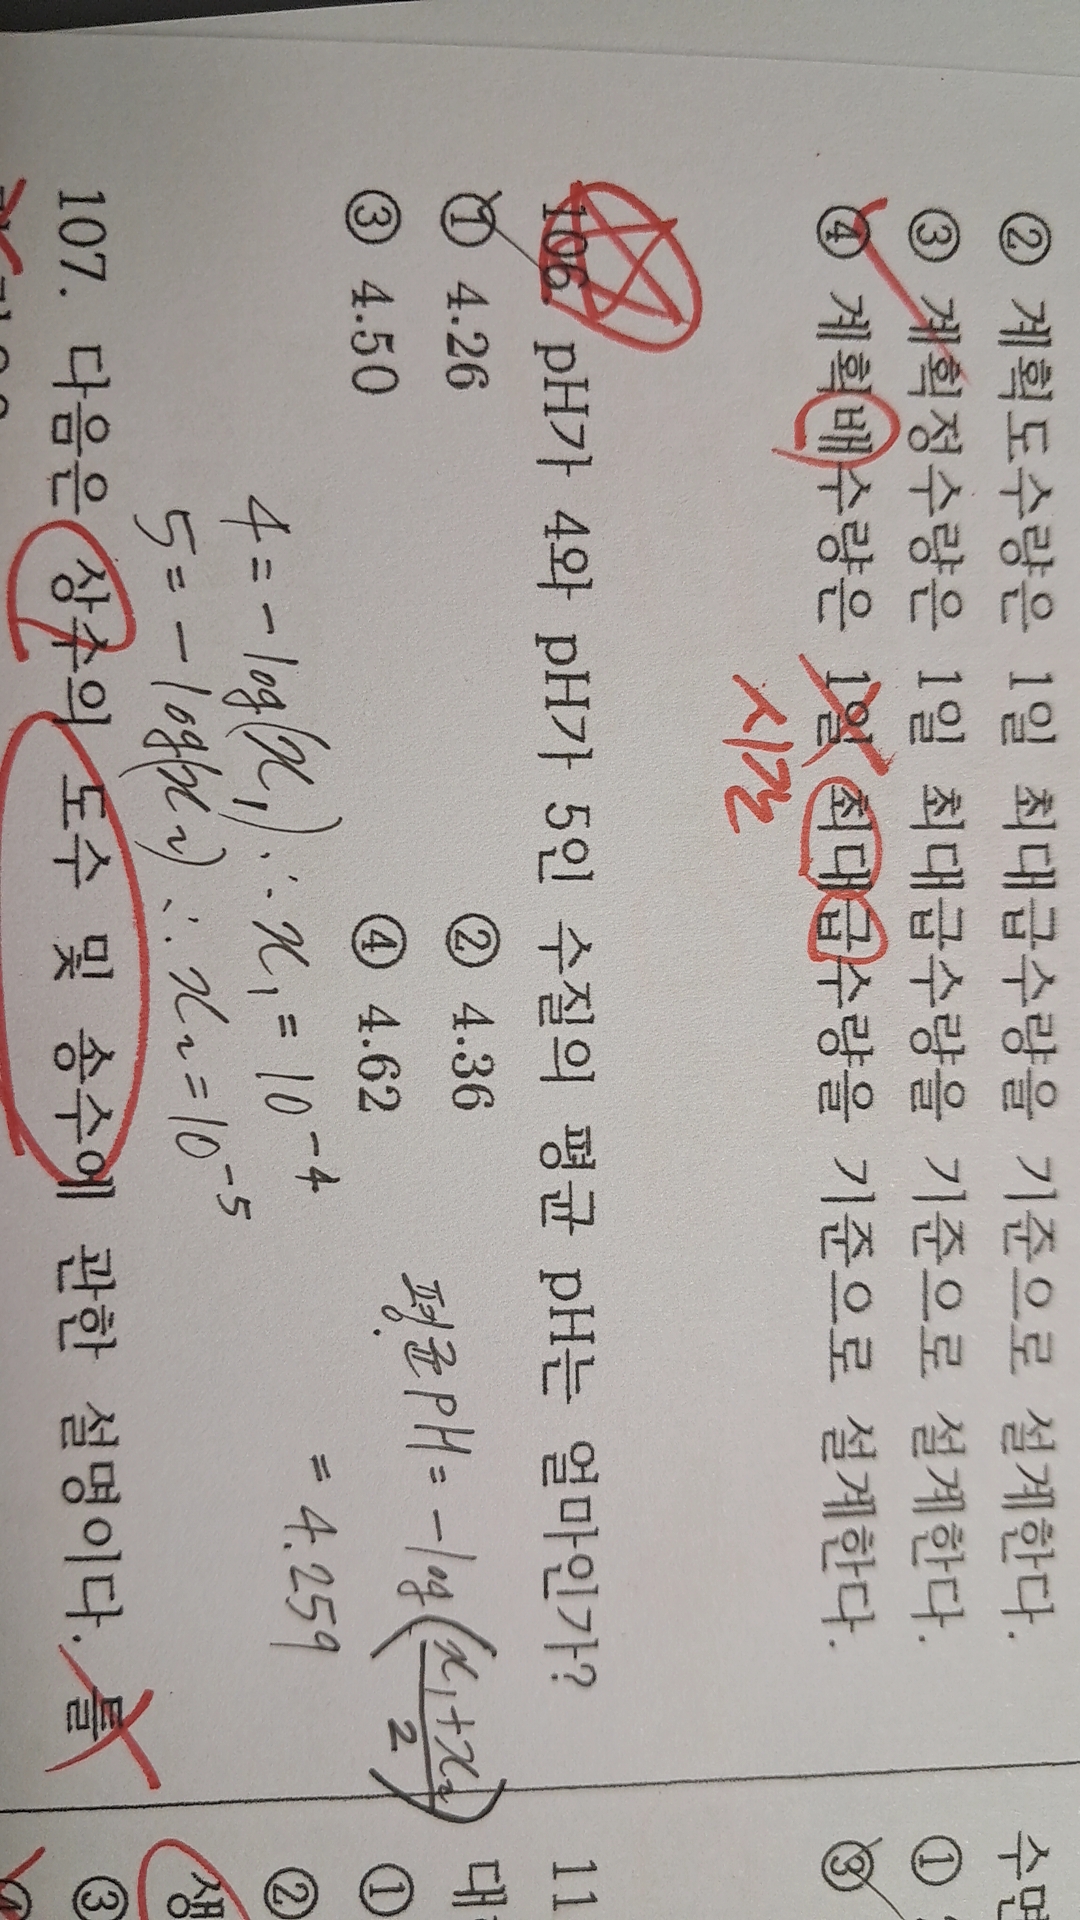 ② 계획도수량은 1일 최대급수량을 기준으로 설계한다.
③ 계획정수량은 1일 최대급수량을 기준으로 설계한다.
④ 계획배수량은 1일 최대급수량을 기준으로 설계한다.
시간
106. pH가 4와 pH가 5인 수질의 평균 pH는 얼마인가?
① 4.26 ② 4.36
③ 4.50 ④ 4.62
평균 pH = -log(x₁+x₂/2)
= 4.259
4 = -log(x₁) ∴ x₁ = 10⁻⁴
5 = -log(x₂) ∴ x₂ = 10⁻⁵
107. 다음은 상수의 도수 및 송수에 관한 설명이다. 틀
수면
①
③
11
①
②
생
③